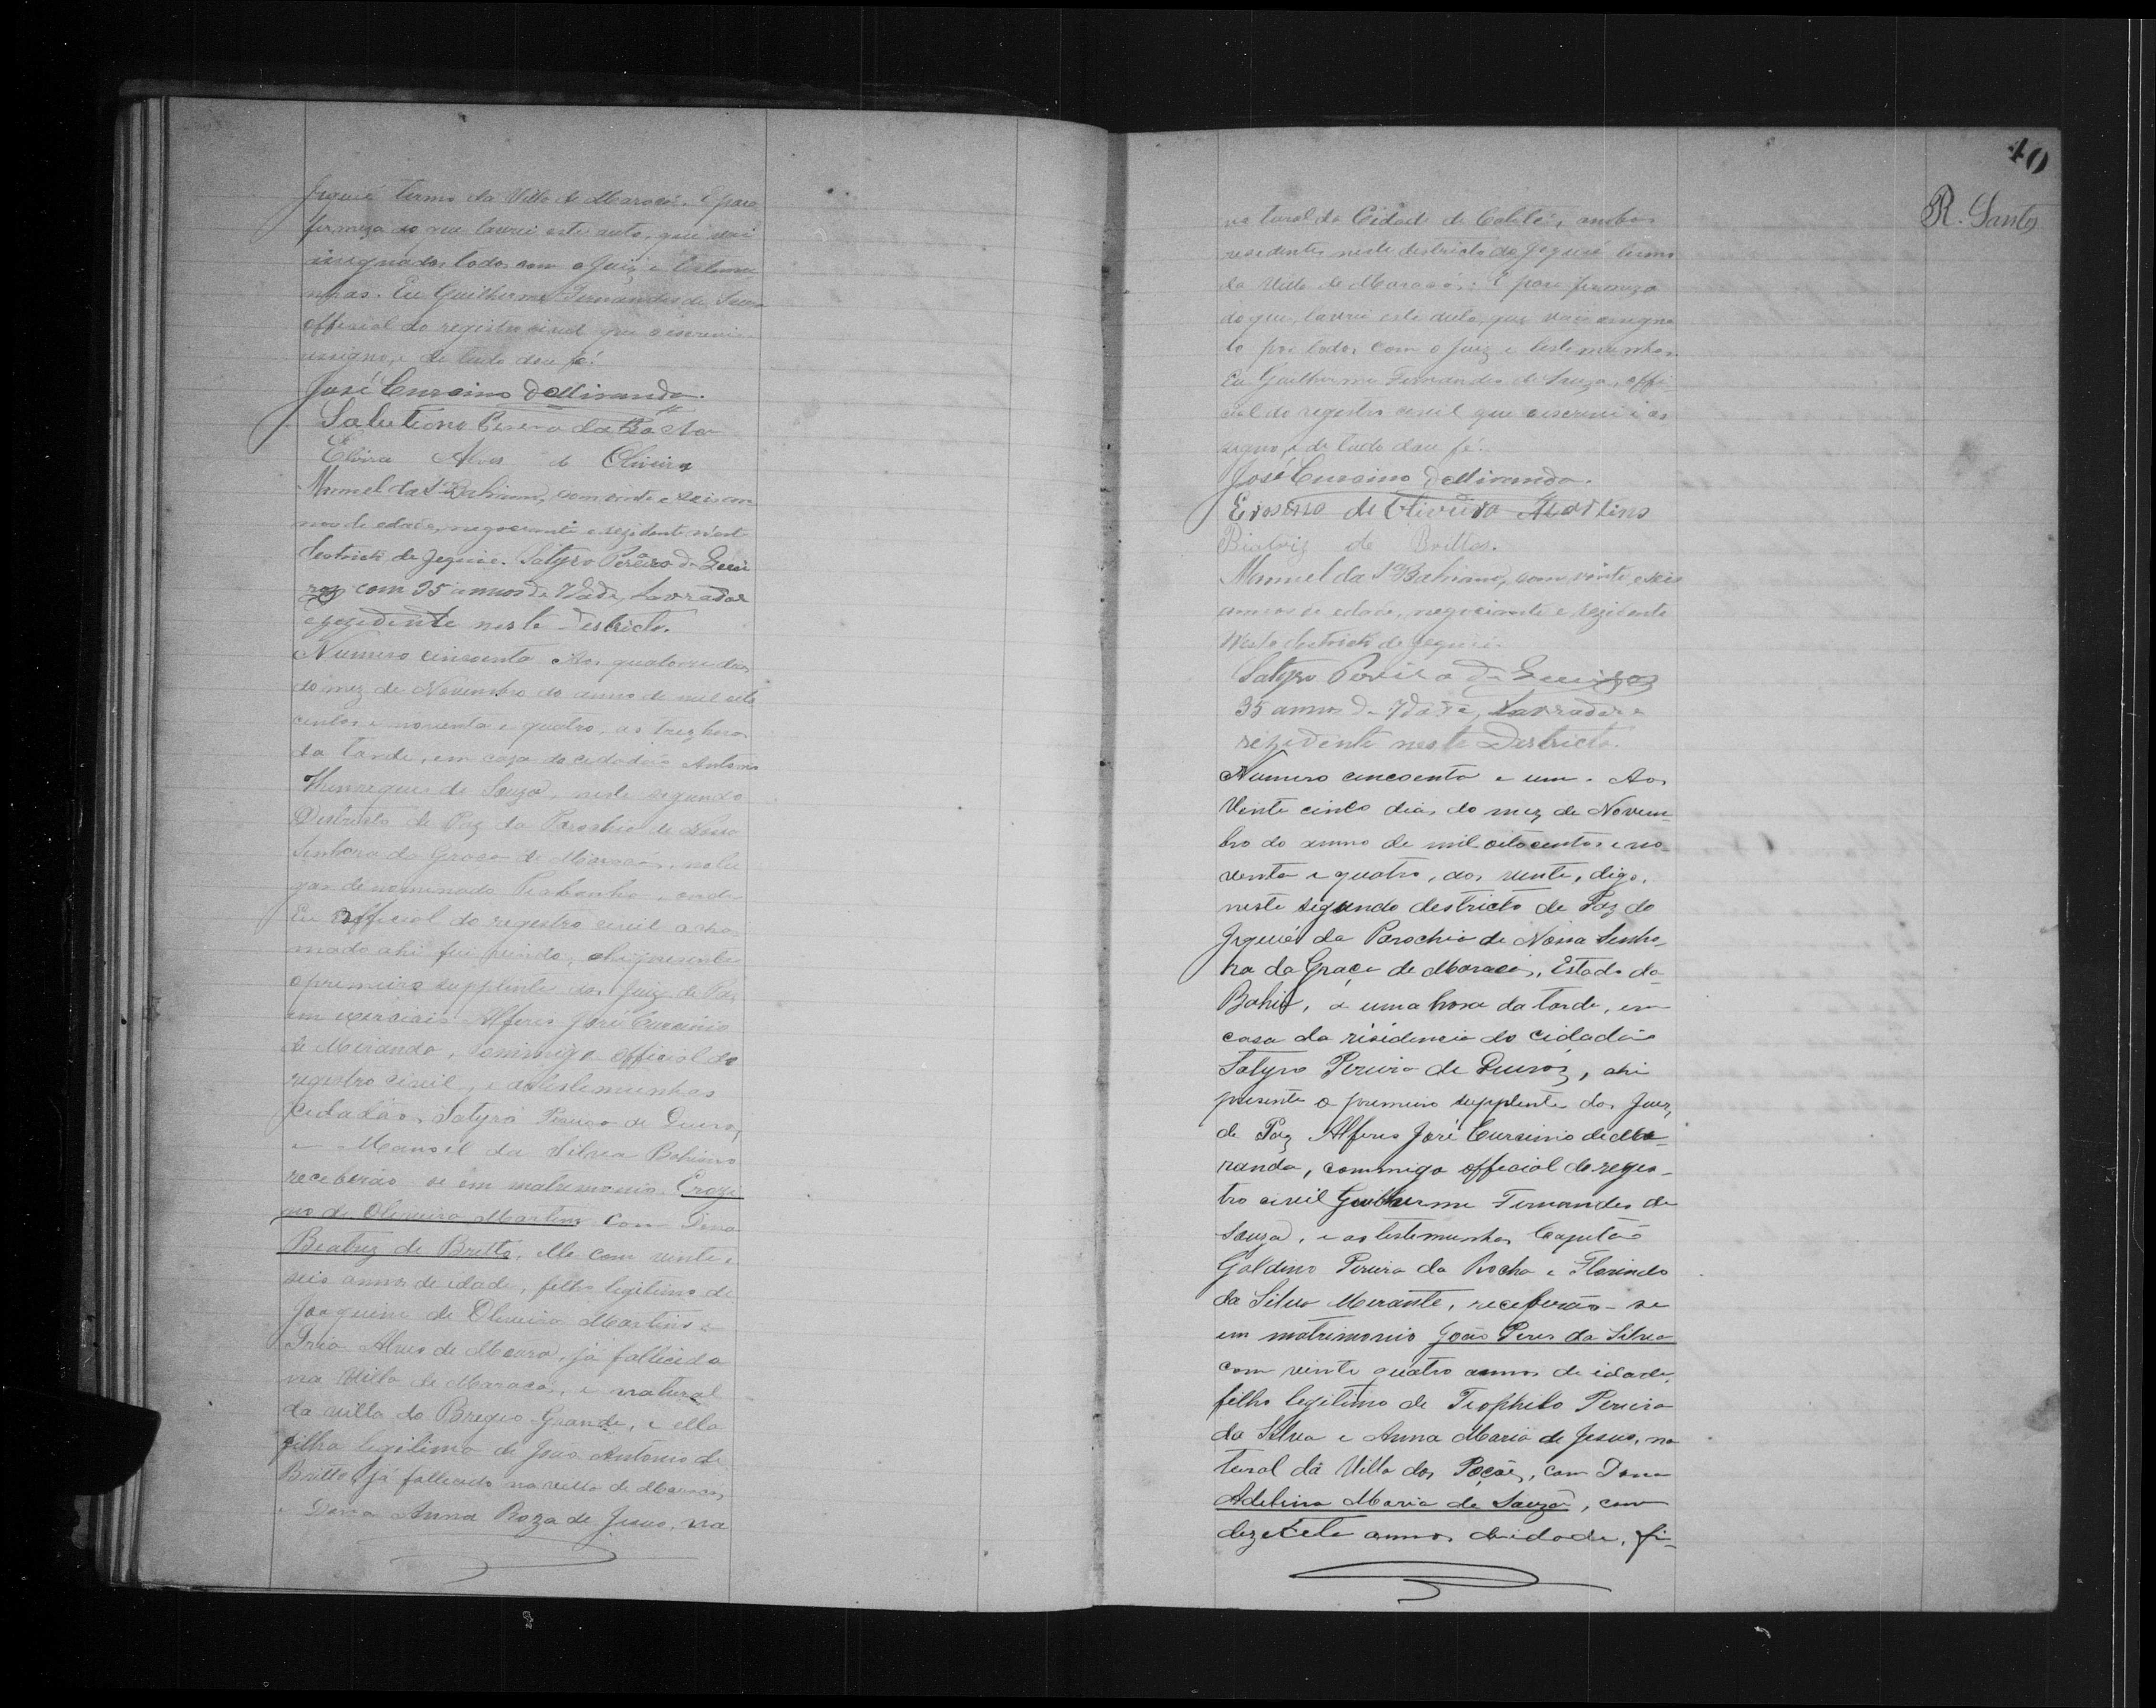 Jequié termo da Villa de Maracás. E para
firmeza do que lavrei este auto, que vai
assignados todos com o Juiz e testemu
nhas. Eu Guilherme Fernandes de Souza
official do registro civil que o escrevi e
assigno, e de tudo dou fé.
José Cursino de Miranda.
Salustiano Pereira da
Elvira Alves de Oliveira
Manoel da Sª Bahiano, com vinte e seis an
nos de edade, negociante e rezidente n'este
destricto de Jequié. Satyro Pereira de Quei
roz com 35 annos de Idade, Lavrador
e rezidente neste Destricto.
Numero cincoenta Aos quatorze dias
do mez de Novembro do anno de mil oito
centos e noventa e quatro, as trez horas
da tarde, em casa do cidadão Antonio
Henriques de Souza, neste segundo
Destricto de Paz da Parochia de Nossa
Senhora da Graça de Maracás, no lu
gar denominado Piabanha, onde
Eu official do registro civil a cha
mado ahi fui vindo, ahi presente
o primeiro supplente do Juiz de Paz
em exercicio Alferes José Cursinio
de Miranda, commigo official do
registro civil, e as testemunhas
cidadãos Satyro Pereira de Queiroz,
e Manoel da Silva Bahiano
receberão se em matrimonio Erozi
no de Oliveira Martins com Dona
Beatriz de Britto, elle com vinte e
seis annos de idade, filho legitimo de
Joaquim de Oliveira Martins e
Iria Alves de Moura, já fallecida
na Villa de Maracás, e natural
da villa do Bregeo Grande, e ella
filha legitima de João Antonio de
Britto, já fallecido na villa de Maracás,
e Dona Anna Roza de Jesus, na
40
R. Santos
tural da Cidade de Caiteté, ambos
residentes neste destricto do Jequié termo
da Villa de Maracás: E para firmeza
do que, lavrei este auto, que vai assigna
do por todos com o Juiz e testemunhas.
Eu Guilherme Fernandes de Souza, offi
cial do registro civil que o escrevi e as
signo, e de tudo dou fé.
José Cursino de Miranda.
Erosino de Oliveira Martins
Biatriz de Brittos.
Manoel da Sª Bahiano, com vinte e seis
annos de edade, negociante e rezidente
Neste destricto de Jequié.
Satyro Pereira de Queiroz
35 annos de Idade, Lavrador e
rezidente neste Destricto.
Numero cincoenta e um. Aos
Vinte cinco dias do mez de Novem-
bro do anno de mil oitocentos e no-
venta e quatro, dos vente, digo,
neste segundo destricto de Paz do
Jequié da Parochia de Nossa Senho-
ra da Graça de Maracás, Estado da
Bahia, a uma hora da tarde, em
casa da residencia do cidadão
Satyro Pereira de Queiroz, ahi
presente o primeiro supplente do Juiz
de Paz Alferes José Cursinio de Mi-
randa, commigo official do regis-
tro civil Guilherme Fernandes de
Souza, e as testemunhas Capitão
Galdino Pereira da Rocha e Florindo
da Silva Merante, receberão-se
em matrimonio João Peres da Silva
com vinte quatro annos de idade,
filho legitimo de Teophilo Pereira
da Silva e Anna Maria de Jesus, na
tural da Villa dos Poções, com Dona
Adelina Maria de Souza, com
dezesete annos de idade, fi-